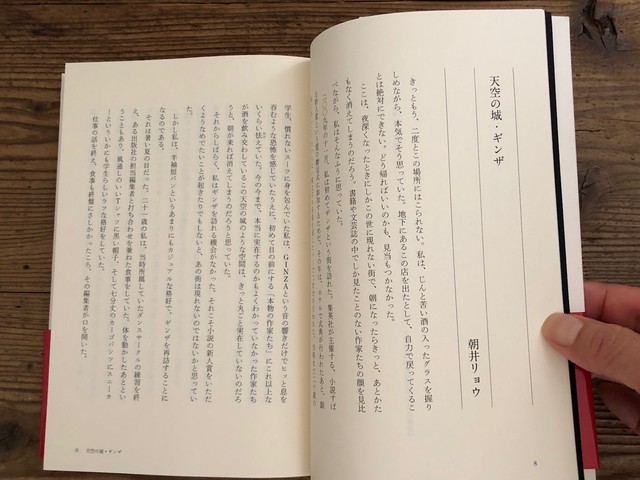 天空の城・ギンザ
朝井リョウ
きっともう、二度とこの場所にはこられない。私は、じんと苦い酒の入ったグラスを握り
しめながら、本気でそう思っていた。地下にあるこの店を出たとして、自力で戻ってくるこ
とは絶対にできない。どう帰ればいいのかも、見当もつかなかった。
ここは、夜深くなったときにしかこの世に現れない街で、朝になったらきっと、あとかた
もなく消えてしまうのだろう。書籍や文芸誌の中でしか見たことのない作家たちの顔を見比
べながら、私はそんなふうに思っていた。
二〇〇九年の十一月、私は初めてギンザという街を訪れた。集英社が主催する、小説すば
8
学生、慣れないスーツに身を包んでいた私は、GINZAという音の響きだけでヒッと息を
呑むような恐怖を感じていたうえに、初めて目の前にする「本物の作家たち」にこれ以上な
いくらい怯えていた。今の今まで、本当に実在するのかもよくわかっていなかった作家たち
が酒を飲み交わしているこの天空の城のような空間は、きっと丸ごと実在していないのだろ
うと、朝が来れば消えてしまうのだろうと思っていた。
それからしばらく、私はギンザを訪れる機会がなかった。それこそ小説の新人賞をいただ
くようなめでたいことが起きたりでもしないと、あの街は現れないのではないかと思ってい
た。
しかし私は、半袖短パンというあまりにもカジュアルな格好で、ギンザを再訪することに
なるのである。
それは暑い夏の日だった。二十一歳の私は、当時所属していたダンスサークルの練習を終
え、ある出版社の担当編集者と打ち合わせを兼ねた食事をしていた。体を動かしたあとという
こともあり、風通しのいいTシャツに黒い帽子、そして七分丈のカーゴパンツにスニーカ
ーといういかにも学生らしいラフな格好をしていた。
仕事の話を終え、食事も終盤にさしかかったころ、その編集者が口を開いた。
9 天空の城・ギンザ